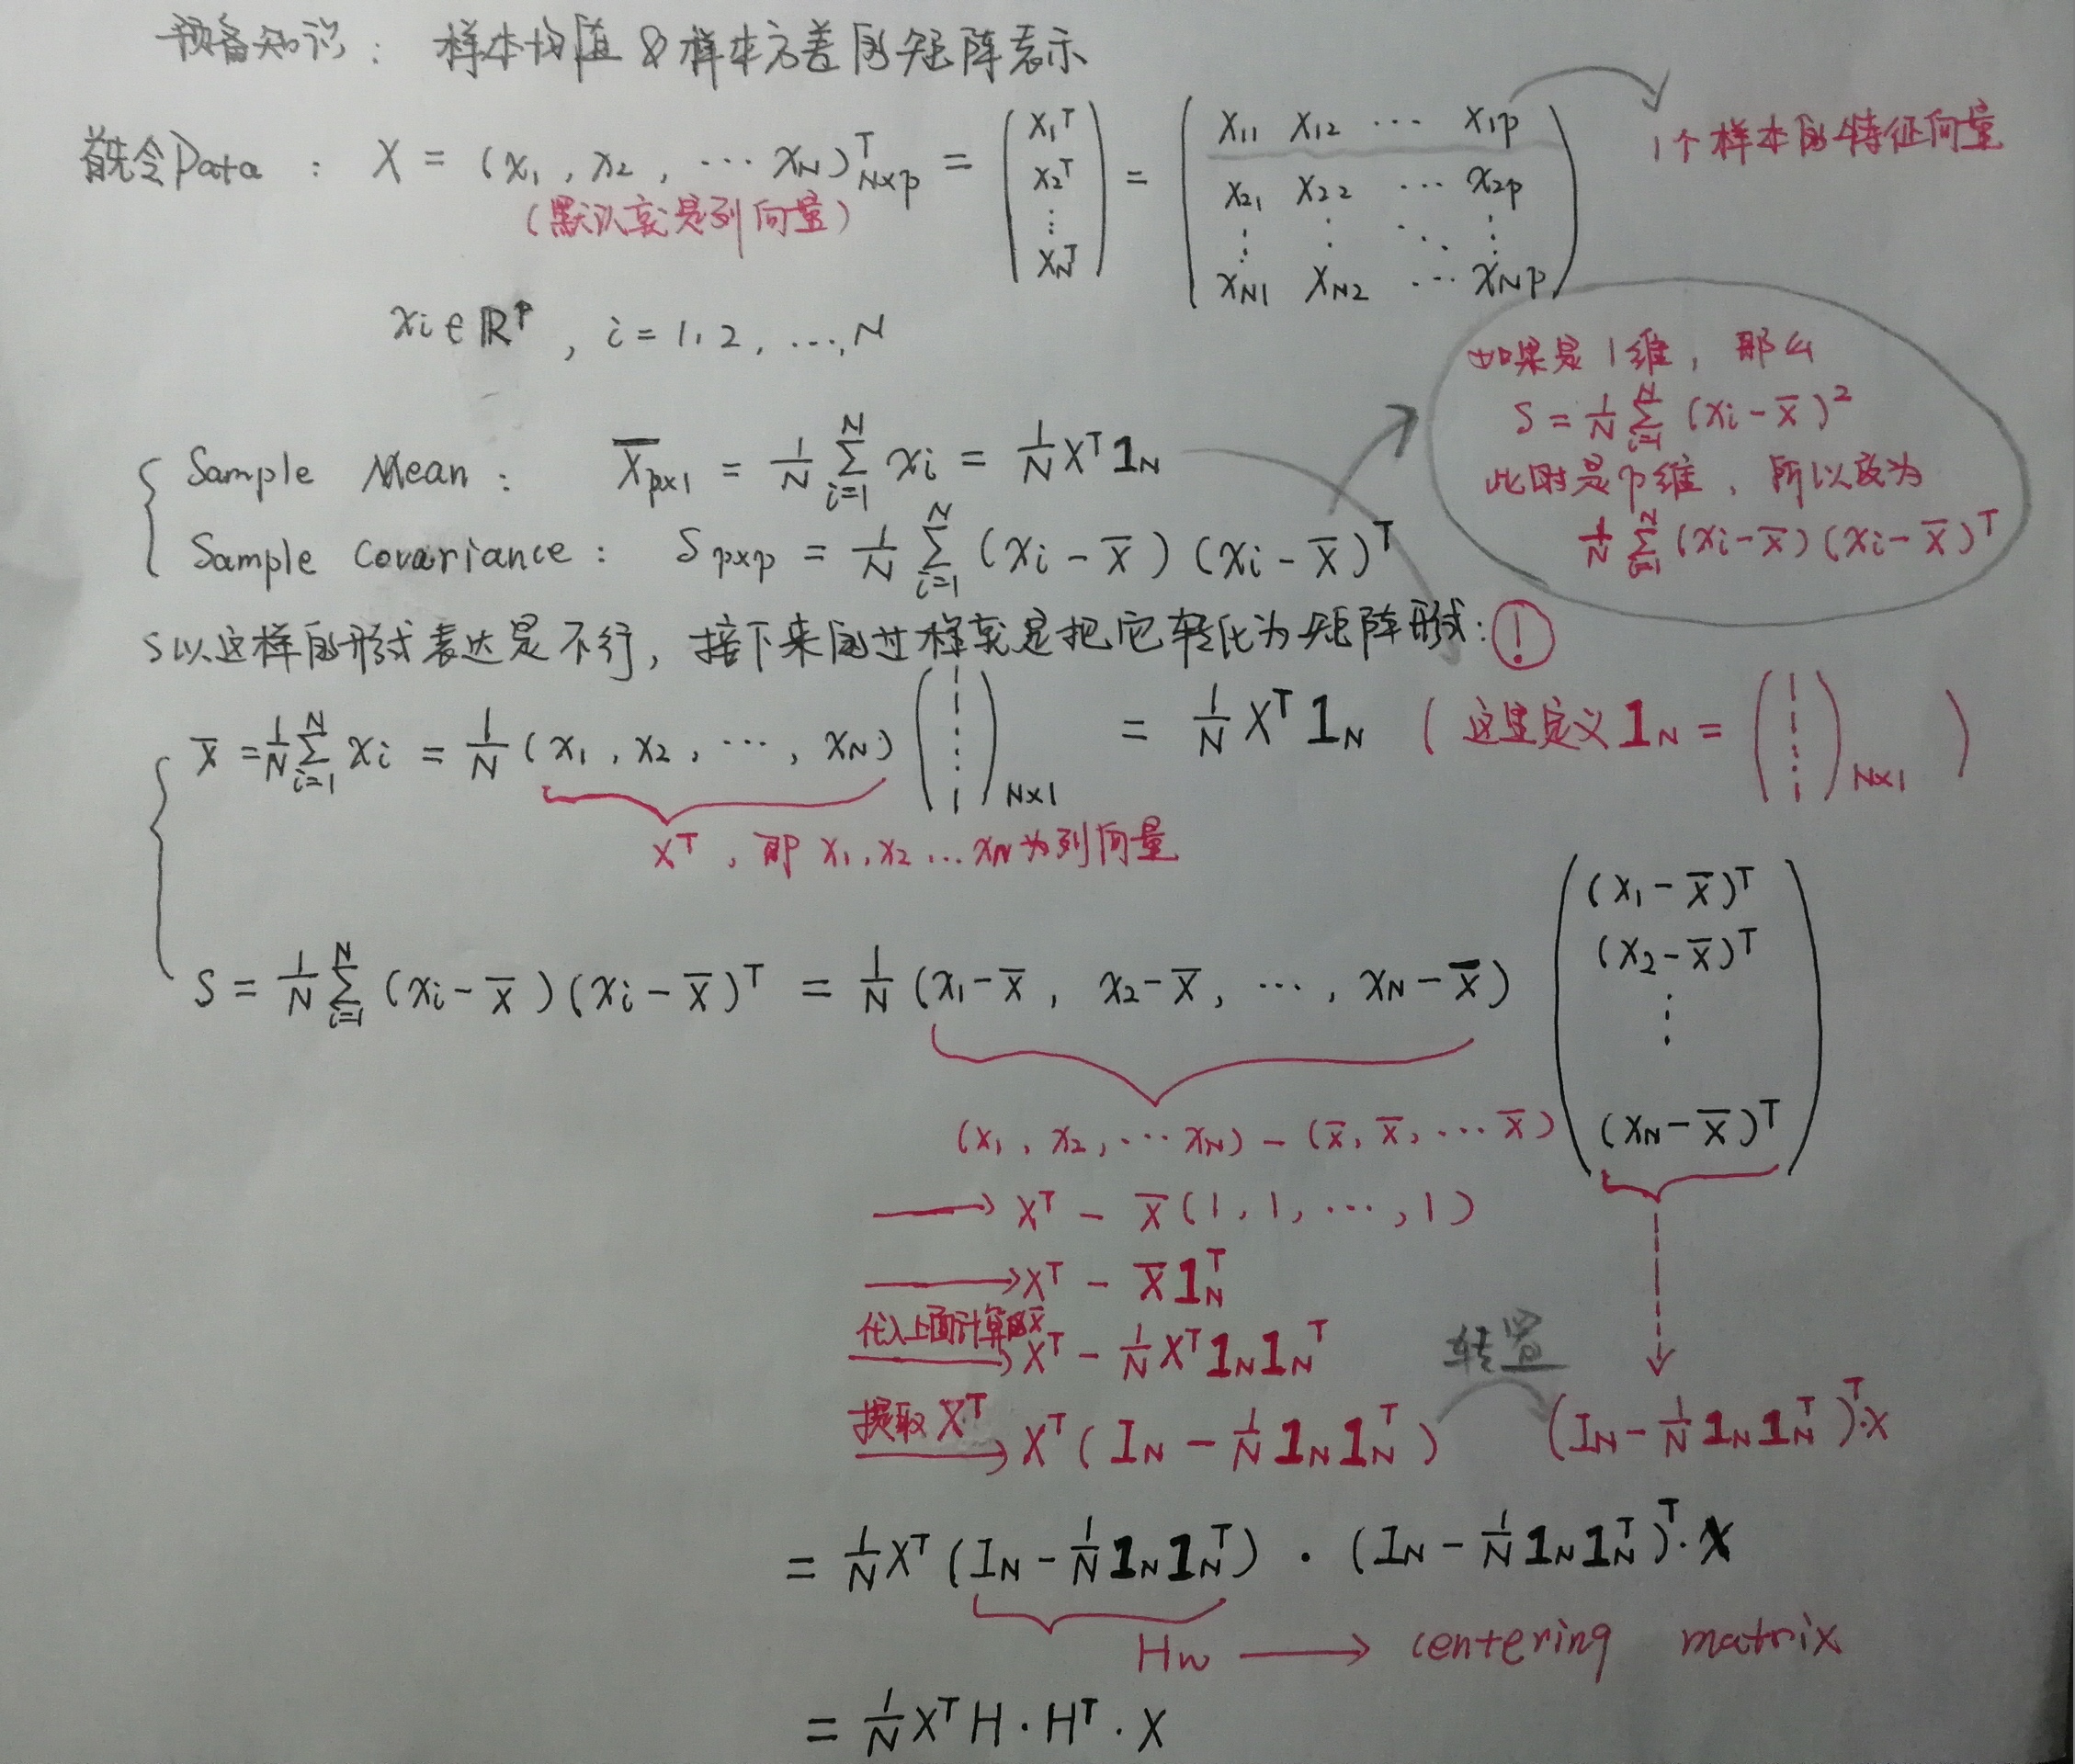 预备知识: 样本均值 & 样本方差的矩阵表示
首先令Data : X = (x₁, x₂, ⋯ x_N)ᵀ_{N×p} = (x₁ᵀ x₂ᵀ ⋮ x_Nᵀ) = (x₁₁ x₁₂ ⋯ x₁p
x₂₁ x₂₂ ⋯ x₂p
⋮ ⋮ ⋱ ⋮
x_{N1} x_{N2} ⋯ x_{Np})
1个样本的特征向量
(默认就是列向量)
xᵢ ∈ ℝᵖ, i = 1, 2, …, N
如果是1维, 那么
S = 1/N ∑_{i=1}^N (xᵢ - x̄)²
此时是p维, 所以改为
1/N ∑_{i=1}^N (xᵢ - x̄)(xᵢ - x̄)ᵀ
Sample Mean: X̄_{p×1} = 1/N ∑_{i=1}^N xᵢ = 1/N Xᵀ 1_N
Sample Covariance: S_{p×p} = 1/N ∑_{i=1}^N (xᵢ - x̄)(xᵢ - x̄)ᵀ
S以这样的形式表达是不行, 接下来的过程就是把它转化为矩阵形式: !
x̄ = 1/N ∑_{i=1}^N xᵢ = 1/N (x₁, x₂, ⋯, x_N) (1 1 ⋮ 1)_{N×1} = 1/N Xᵀ 1_N (这里定义 1_N = (1 1 ⋮ 1)_{N×1})
Xᵀ, 即 x₁, x₂ … x_N 为列向量
S = 1/N ∑_{i=1}^N (xᵢ - x̄)(xᵢ - x̄)ᵀ = 1/N (x₁ - x̄, x₂ - x̄, ⋯, x_N - x̄) ((x₁ - x̄)ᵀ
(x₂ - x̄)ᵀ
⋮
(x_N - x̄)ᵀ)
(x₁, x₂, ⋯ x_N) - (x̄, x̄, ⋯ x̄)
→ Xᵀ - x̄(1, 1, ⋯, 1)
→ Xᵀ - x̄ 1_Nᵀ
代入上面计算的x̄ → Xᵀ - 1/N Xᵀ 1_N 1_Nᵀ
转置
提取 Xᵀ → Xᵀ(I_N - 1/N 1_N 1_Nᵀ) (I_N - 1/N 1_N 1_Nᵀ)ᵀ·X
= 1/N Xᵀ(I_N - 1/N 1_N 1_Nᵀ) · (I_N - 1/N 1_N 1_Nᵀ)ᵀ · X
H_N → centering matrix
= 1/N Xᵀ H · Hᵀ · X